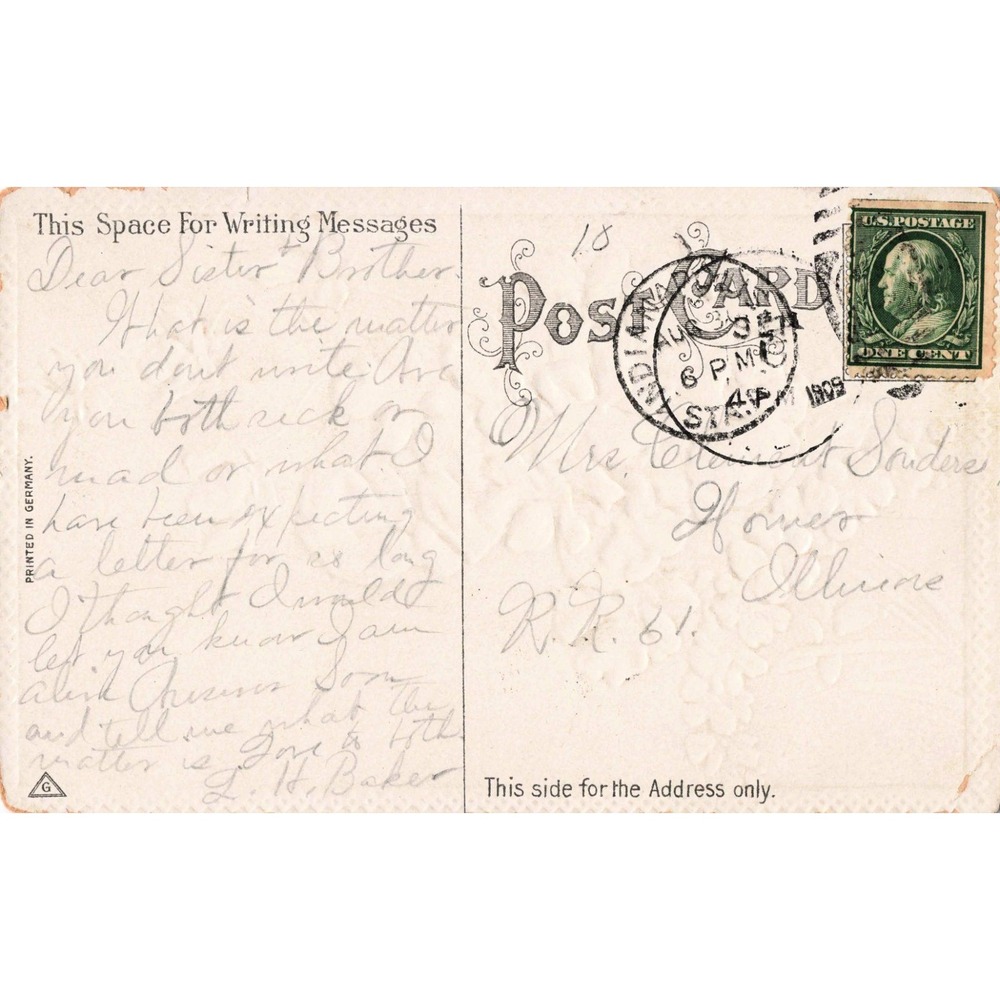 This Space For Writing Messages
Dear Sister & Brother.
What is the matter
you dont write Are
you both sick or
mad or what I
have been expecting
a letter for so long
I thought I would
let you know I am
alive Answer Soon
and tell me what the
matter is Love to both
L. H. Baker
PRINTED IN GERMANY.
G
18
POST CARD
INDIANAPOLIS
AUG
6 PM
1909
STA.
U.S. POSTAGE
ONE CENT
Mrs. Clement Souders
Homer
Illinois
R.R. 61.
This side for the Address only.